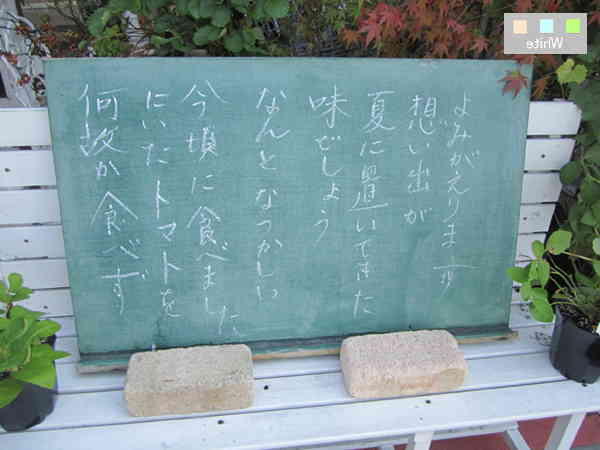 何故か食べず
にいたトマトを
今頃に食べました
なんとなつかしい
味でしょう
夏に置いてきた
想い出が
よみがえります
White